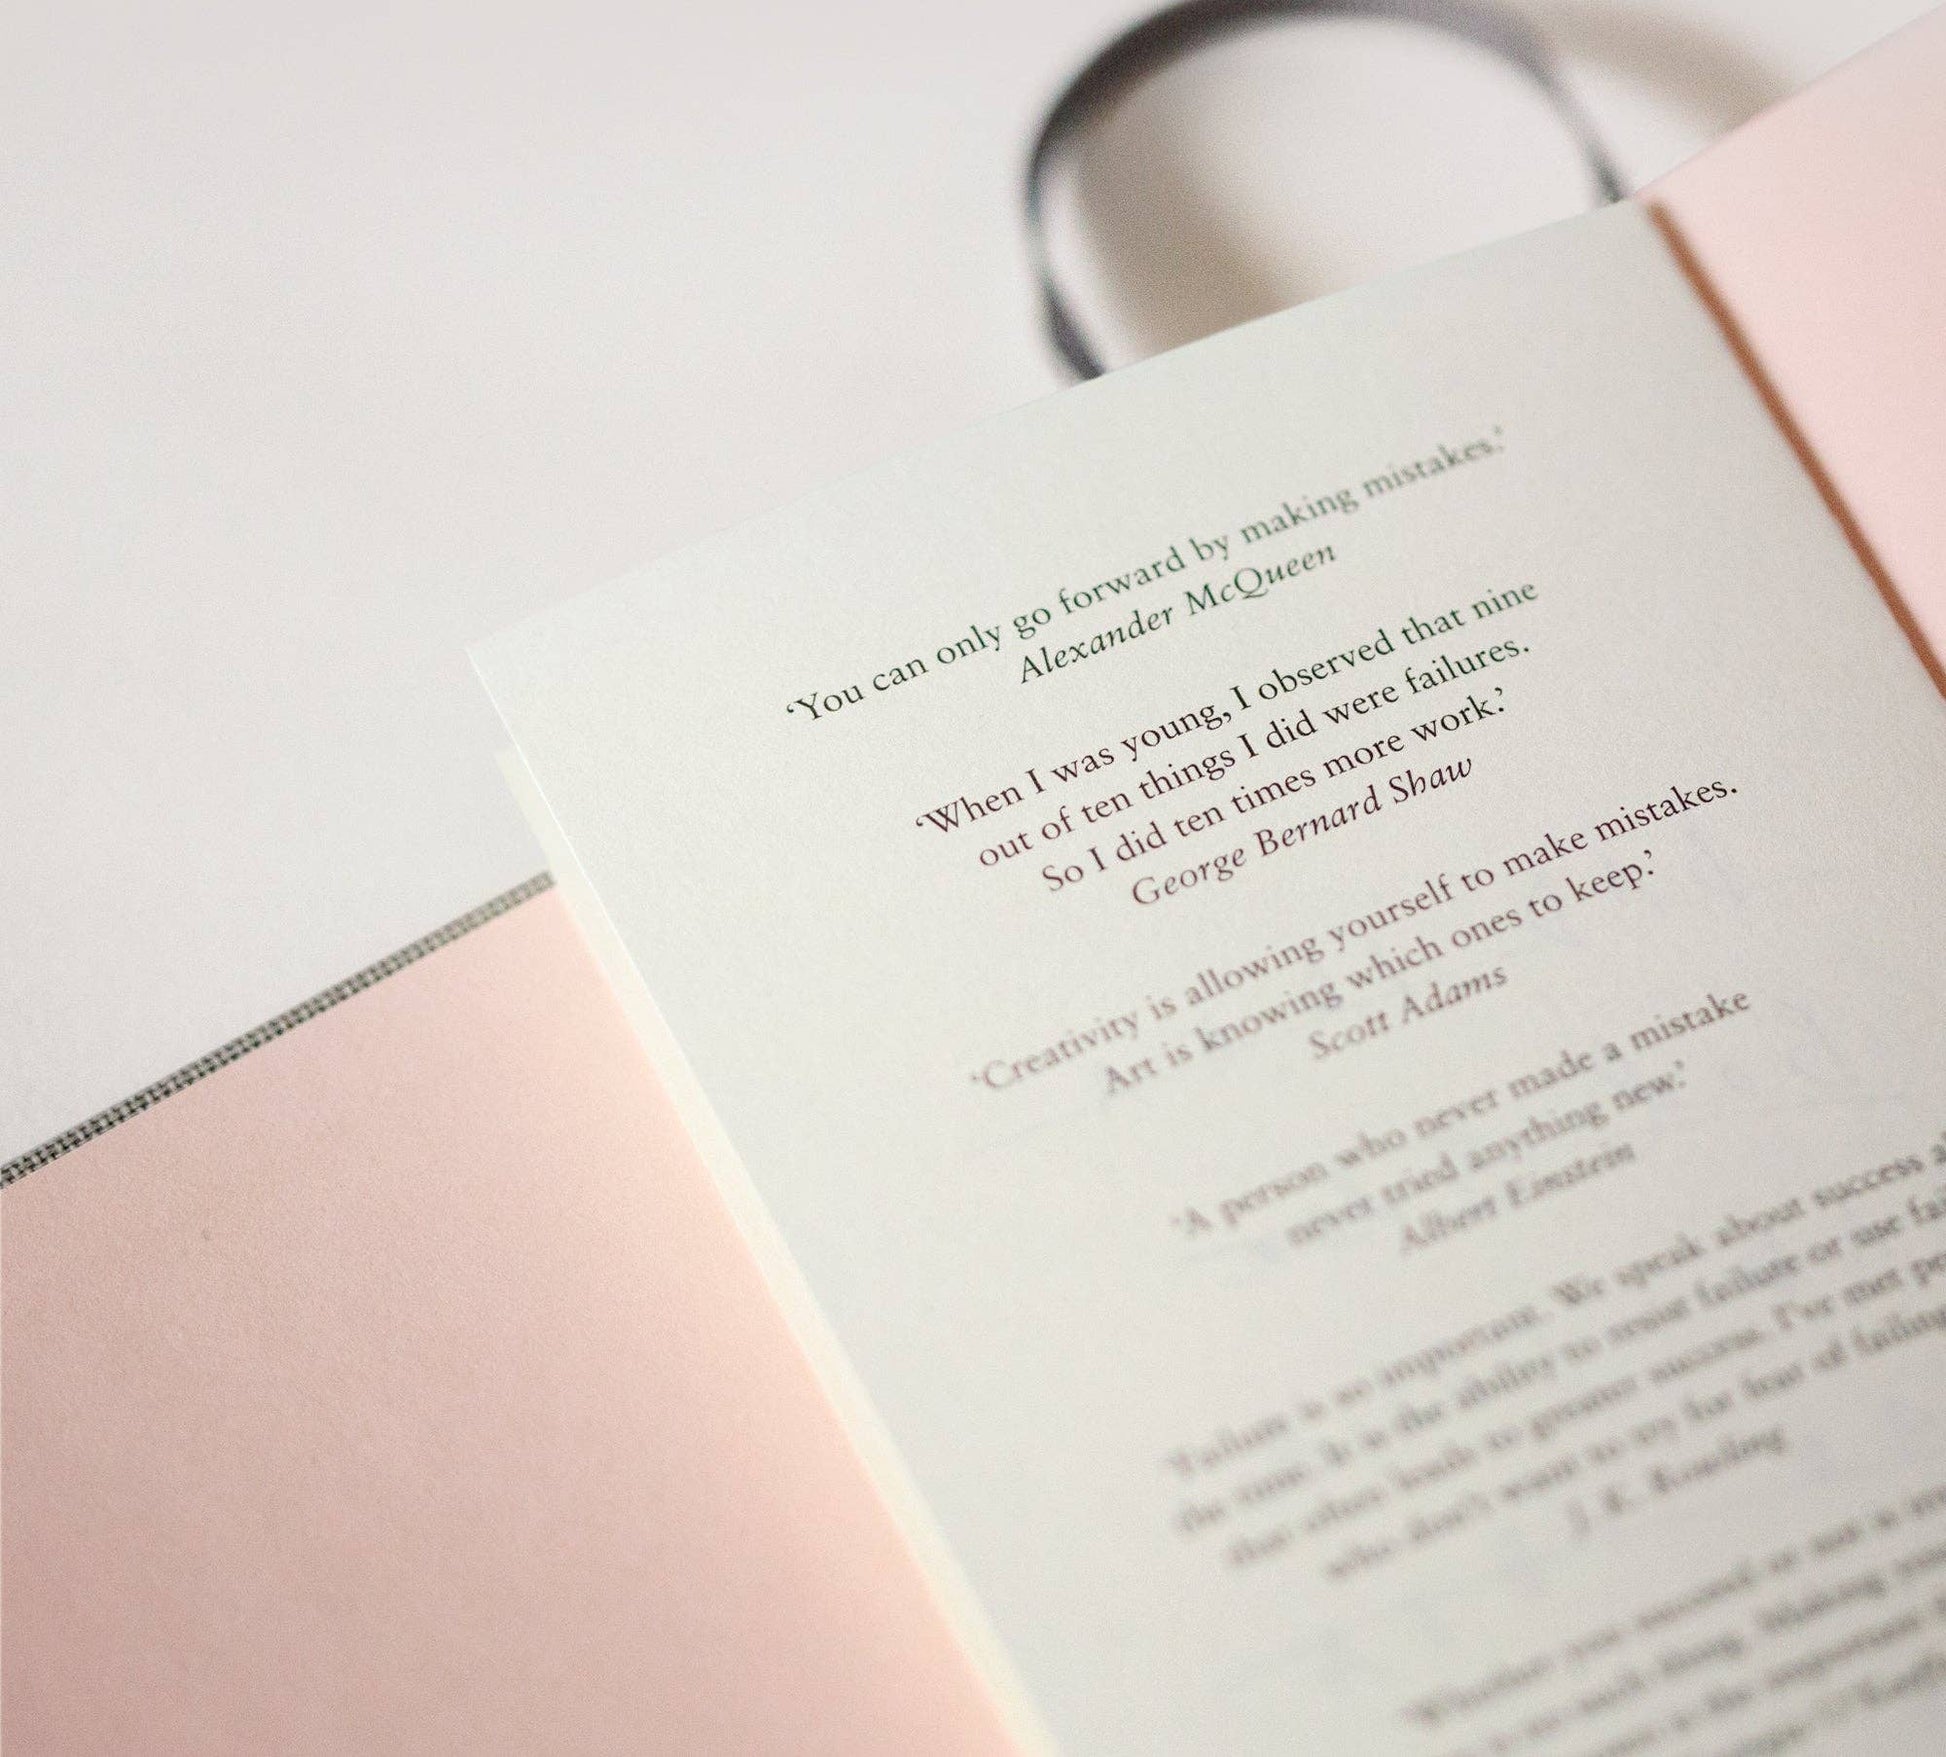 ‘You can only go forward by making mistakes.’
Alexander McQueen
‘When I was young, I observed that nine
out of ten things I did were failures.
So I did ten times more work.’
George Bernard Shaw
‘Creativity is allowing yourself to make mistakes.
Art is knowing which ones to keep.’
Scott Adams
‘A person who never made a mistake
never tried anything new.’
Albert Einstein
‘Failure is so important. We speak about success
the time. It is the ability to resist failure or use
that often leads to greater success. I’ve met
who don’t want to try for fear of failing
J. K. Rowling
‘Whether you succeed or not is
no such thing. Making
is the important